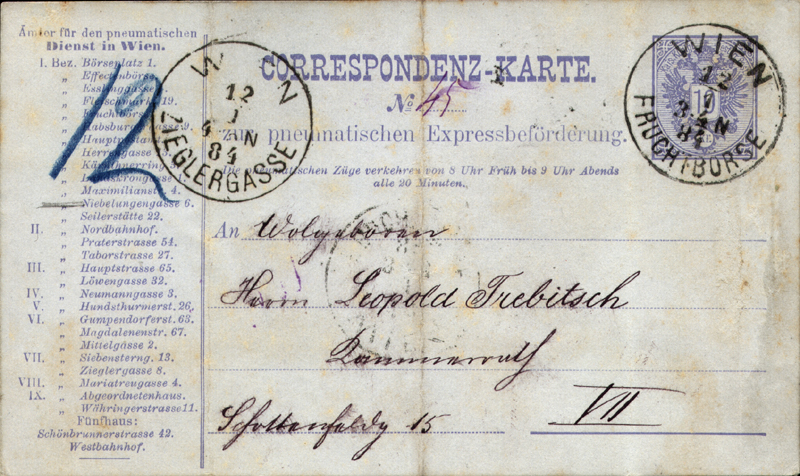 Ämter für den pneumatischen
Dienst in Wien.
I. Bez. Börseplatz 1.
„ Effectenbörse
„ Esslinggasse
„ Fleischmarkt 19.
„ Fruchtbörse
„ Habsburgergasse 9.
„ Hauptpost
„ Herrengasse
„ Kärnthnerring
„ Landskrongasse 1.
„ Maximilianstr. 4.
„ Niebelungengasse 6.
„ Seilerstätte 22.
II. „ Nordbahnhof.
„ Praterstrasse 54.
„ Taborstrasse 27.
III. „ Hauptstrasse 65.
„ Löwengasse 32.
IV. „ Neumanngasse 3.
V. „ Hundsthurmerst. 26.
VI. „ Gumpendorferst. 63.
„ Magdalenenstr. 67.
„ Mittelgasse 2.
VII. „ Siebensterng. 13.
„ Zieglergasse 8.
VIII. „ Mariatreugasse 4.
IX. „ Abgeordnetenhaus.
„ Währingerstrasse 11.
Fünfhaus:
Schönbrunnerstrasse 42.
Westbahnhof.
12
WIEN
12
1
4 N
84
ZIEGLERGASSE
CORRESPONDENZ-KARTE.
No 45
zur pneumatischen Expressbeförderung.
Die pneumatischen Züge verkehren von 8 Uhr Früh bis 9 Uhr Abends
alle 20 Minuten.
WIEN
12
1
84
FRUCHTBÖRSE
10
An Wolgeboren
Herrn Leopold Trebitsch
Kammerrath
VII
Schottenfeldg 15